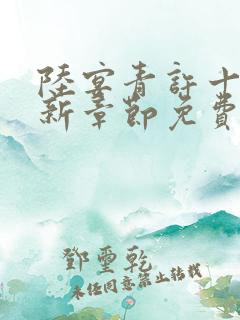 陸宴青許十
新章節免費
鄧璽乾
未任同意禁止轉載